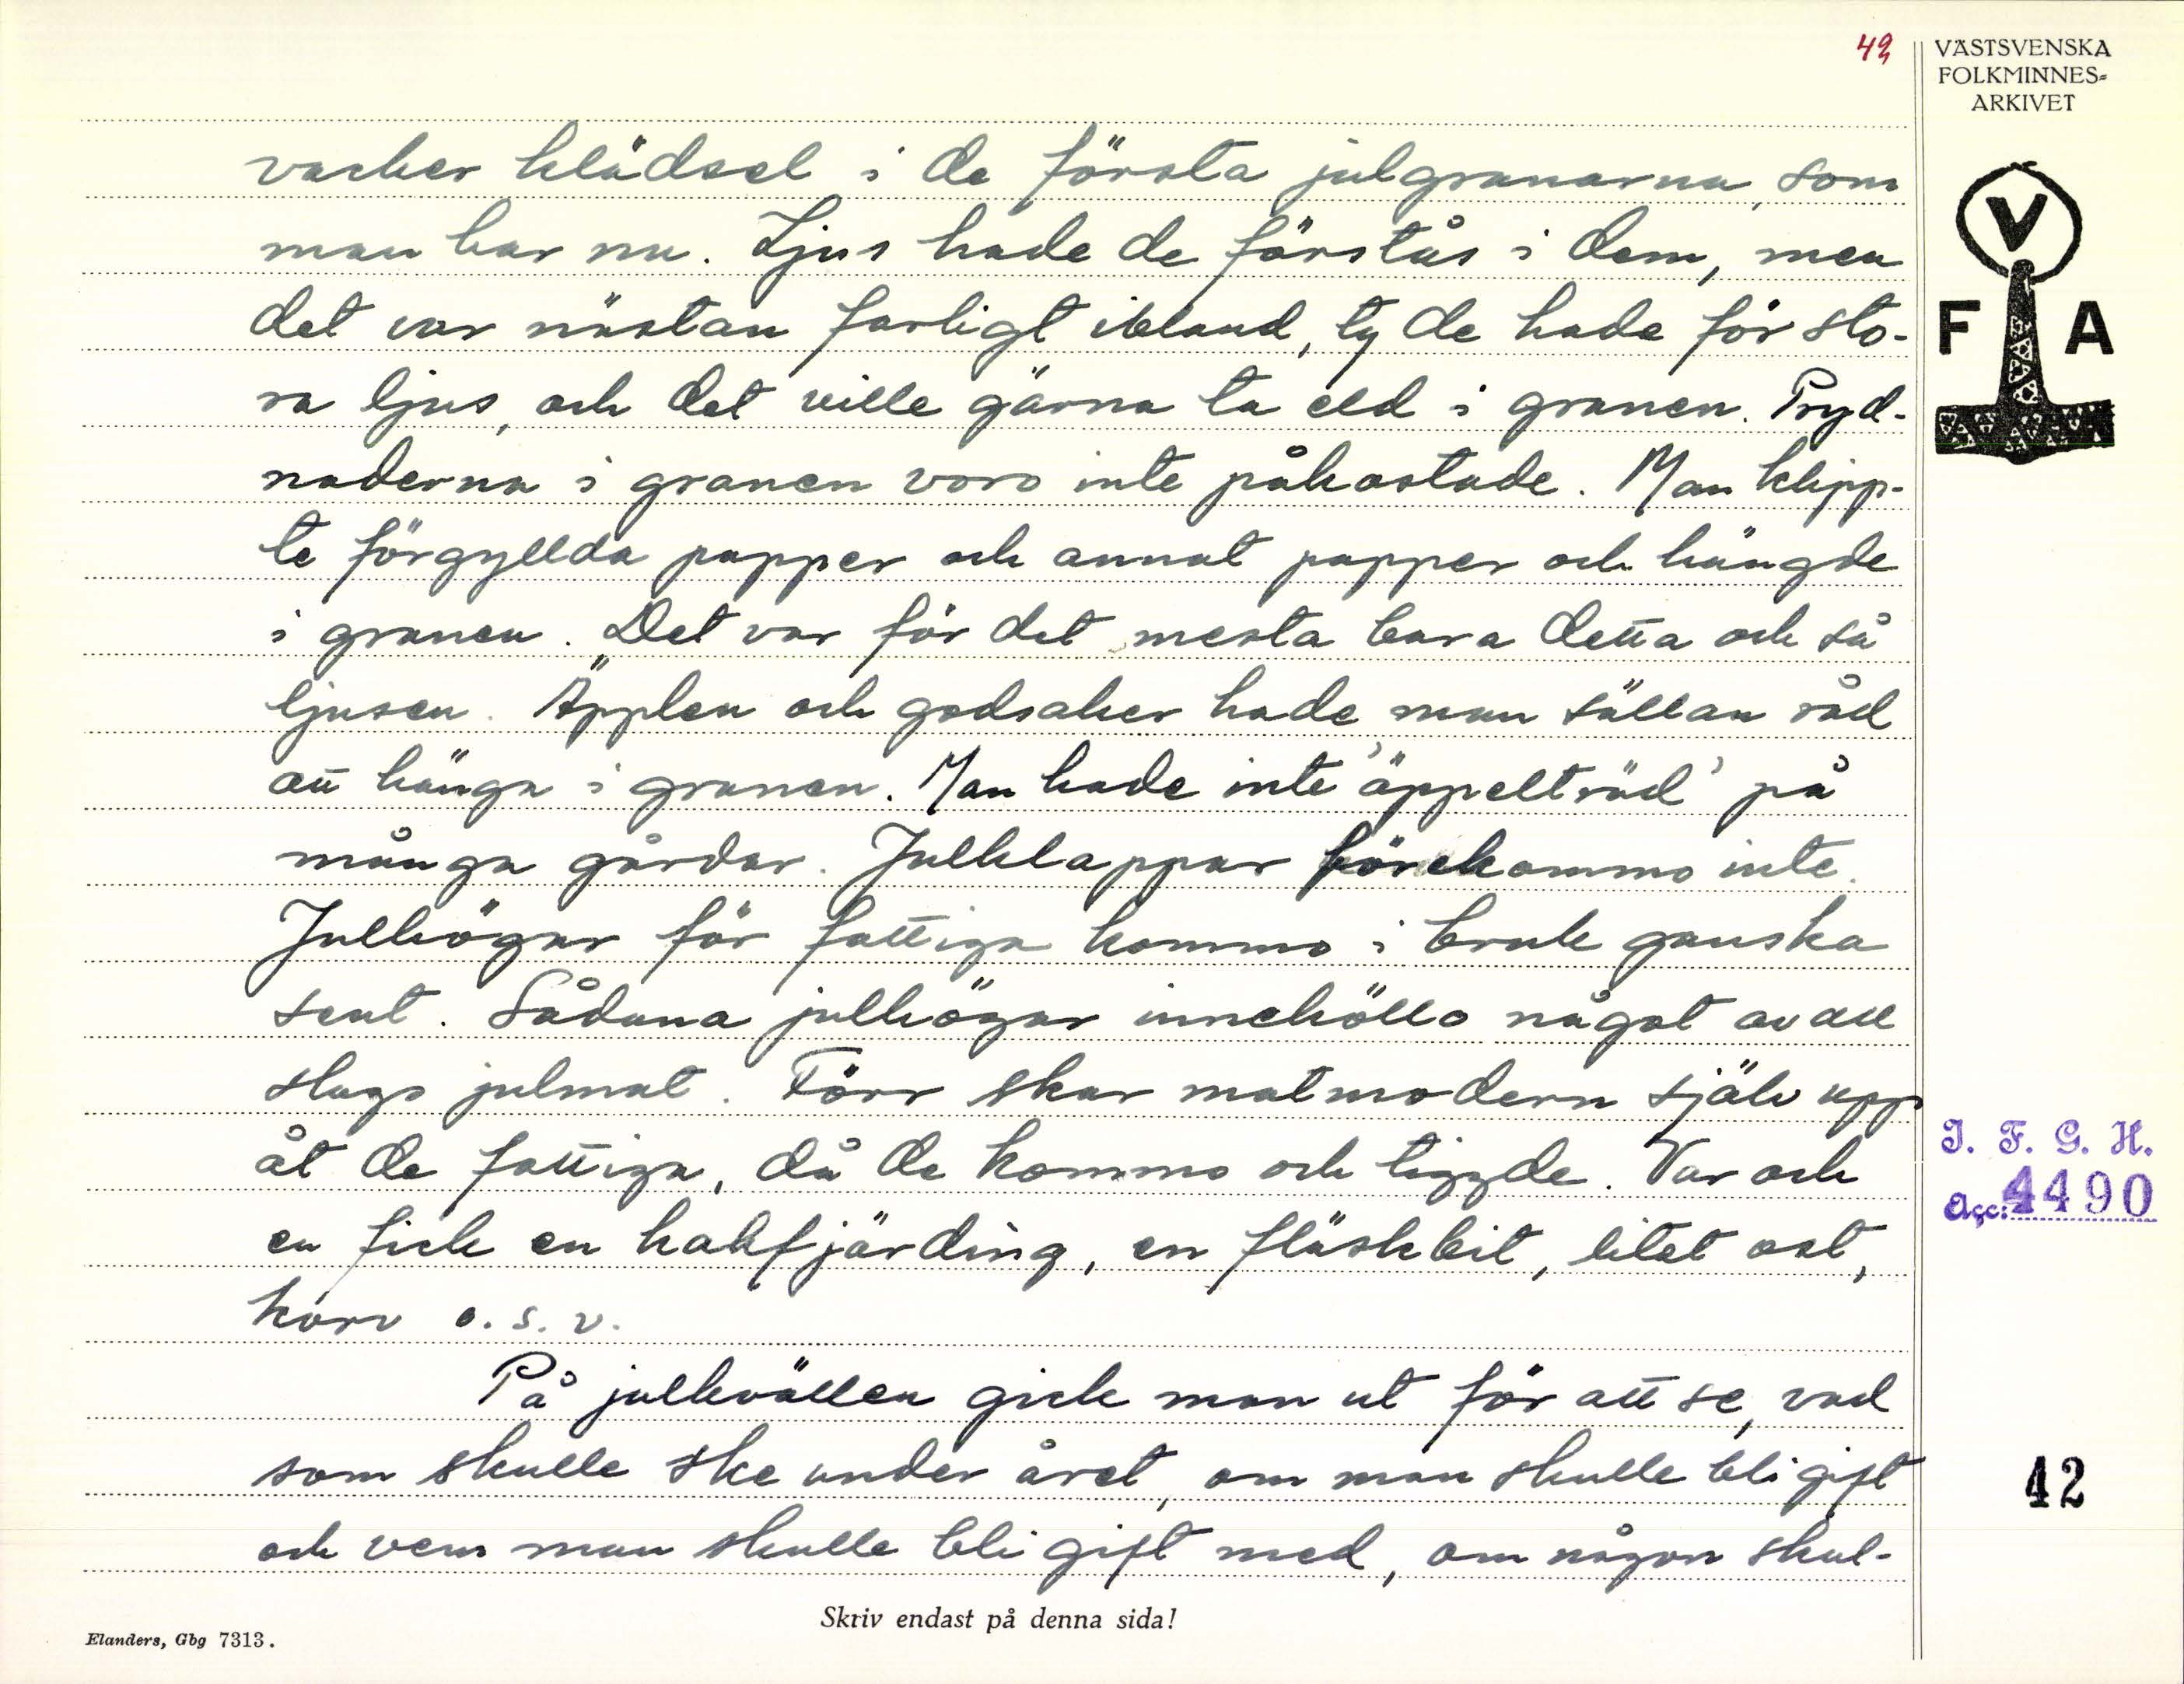 42
VÄSTSVENSKA
FOLKMINNES-
ARKIVET
V
F A
vacker klädsel i de första julgranarna, som
man har nu. Ljus hade de förstås i dem, men
det var nästan farligt ibland, ty de hade för sto-
ra ljus, och det ville gärna ta eld i granen. Pryd-
naderna i granen voro inte påkostade. Man klipp-
te förgyllda papper och annat papper och hängde
i granen. Det var för det mesta bara detta och så
ljusen. Äpplen och godsaker hade man sällan råd
att hänga i granen. Man hade inte 'äppelträd' på
många gårdar. Julklappar förekommo inte.
Julhögar för fattiga kommo i bruk ganska
sent. Sådana julhögar innehöllo något av all
slags julmat. Förr skar matmodern själv upp
åt de fattiga, då de kommo och tiggde. Var och
en fick en halvfjärding, en fläskbit, litet ost,
korv o.s.v.
På julkvällen gick man ut för att se, vad
som skulle ske under året, om man skulle bli gift
och vem man skulle bli gift med, om någon skul-
I. F. G. H.
Acc: 4490
42
Skriv endast på denna sida!
Elanders, Gbg 7313.